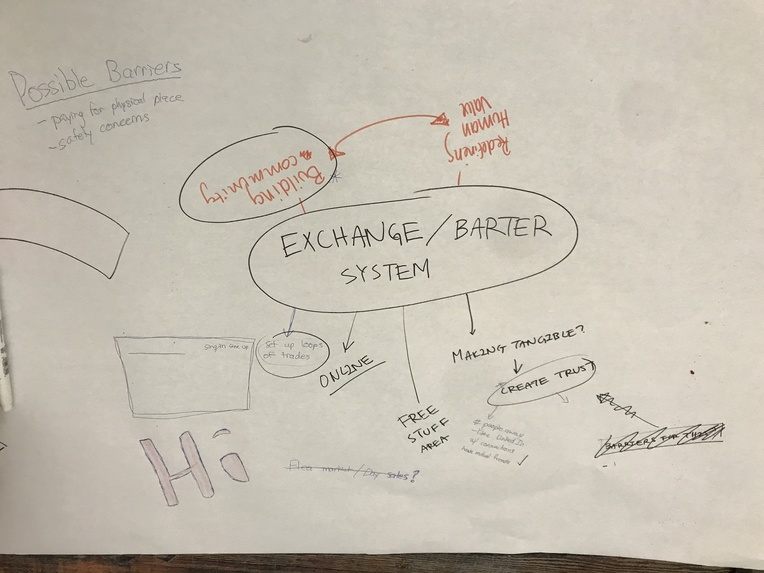 Possible Barriers
- paying for physical place
- safety concerns
Redefining
Human
Value
Building
community
EXCHANGE/BARTER
SYSTEM
set up loops
of trades
ONLINE
FREE
STUFF
AREA
MAKING TANGIBLE?
CREATE TRUST
# people away
- like LinkedIn
w/ connections
have mutual friends ✓
BARRIERS FOR THIS
Flea market/Day sales?
Hi